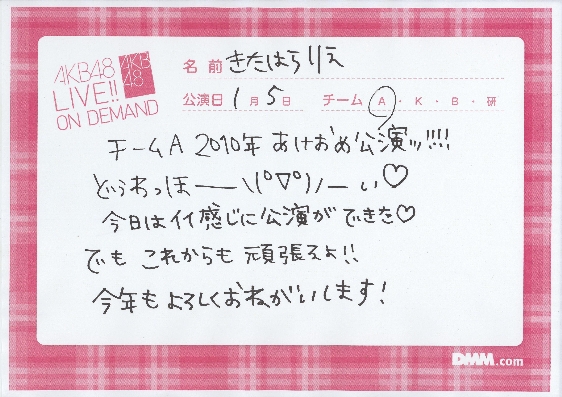 AKB48
LIVE!!
ON DEMAND
AKB
48
名前 きたはらりえ
公演日 1月5日 チーム A・K・B・研
チームA 2010年 あけおめ公演ッ!!!!
どぅわっほーー\(°▽°)/ーい♡
今日はイイ感じに公演ができた♡
でも これからも 頑張るよ!!
今年もよろしくおねがいします!
DMM.com